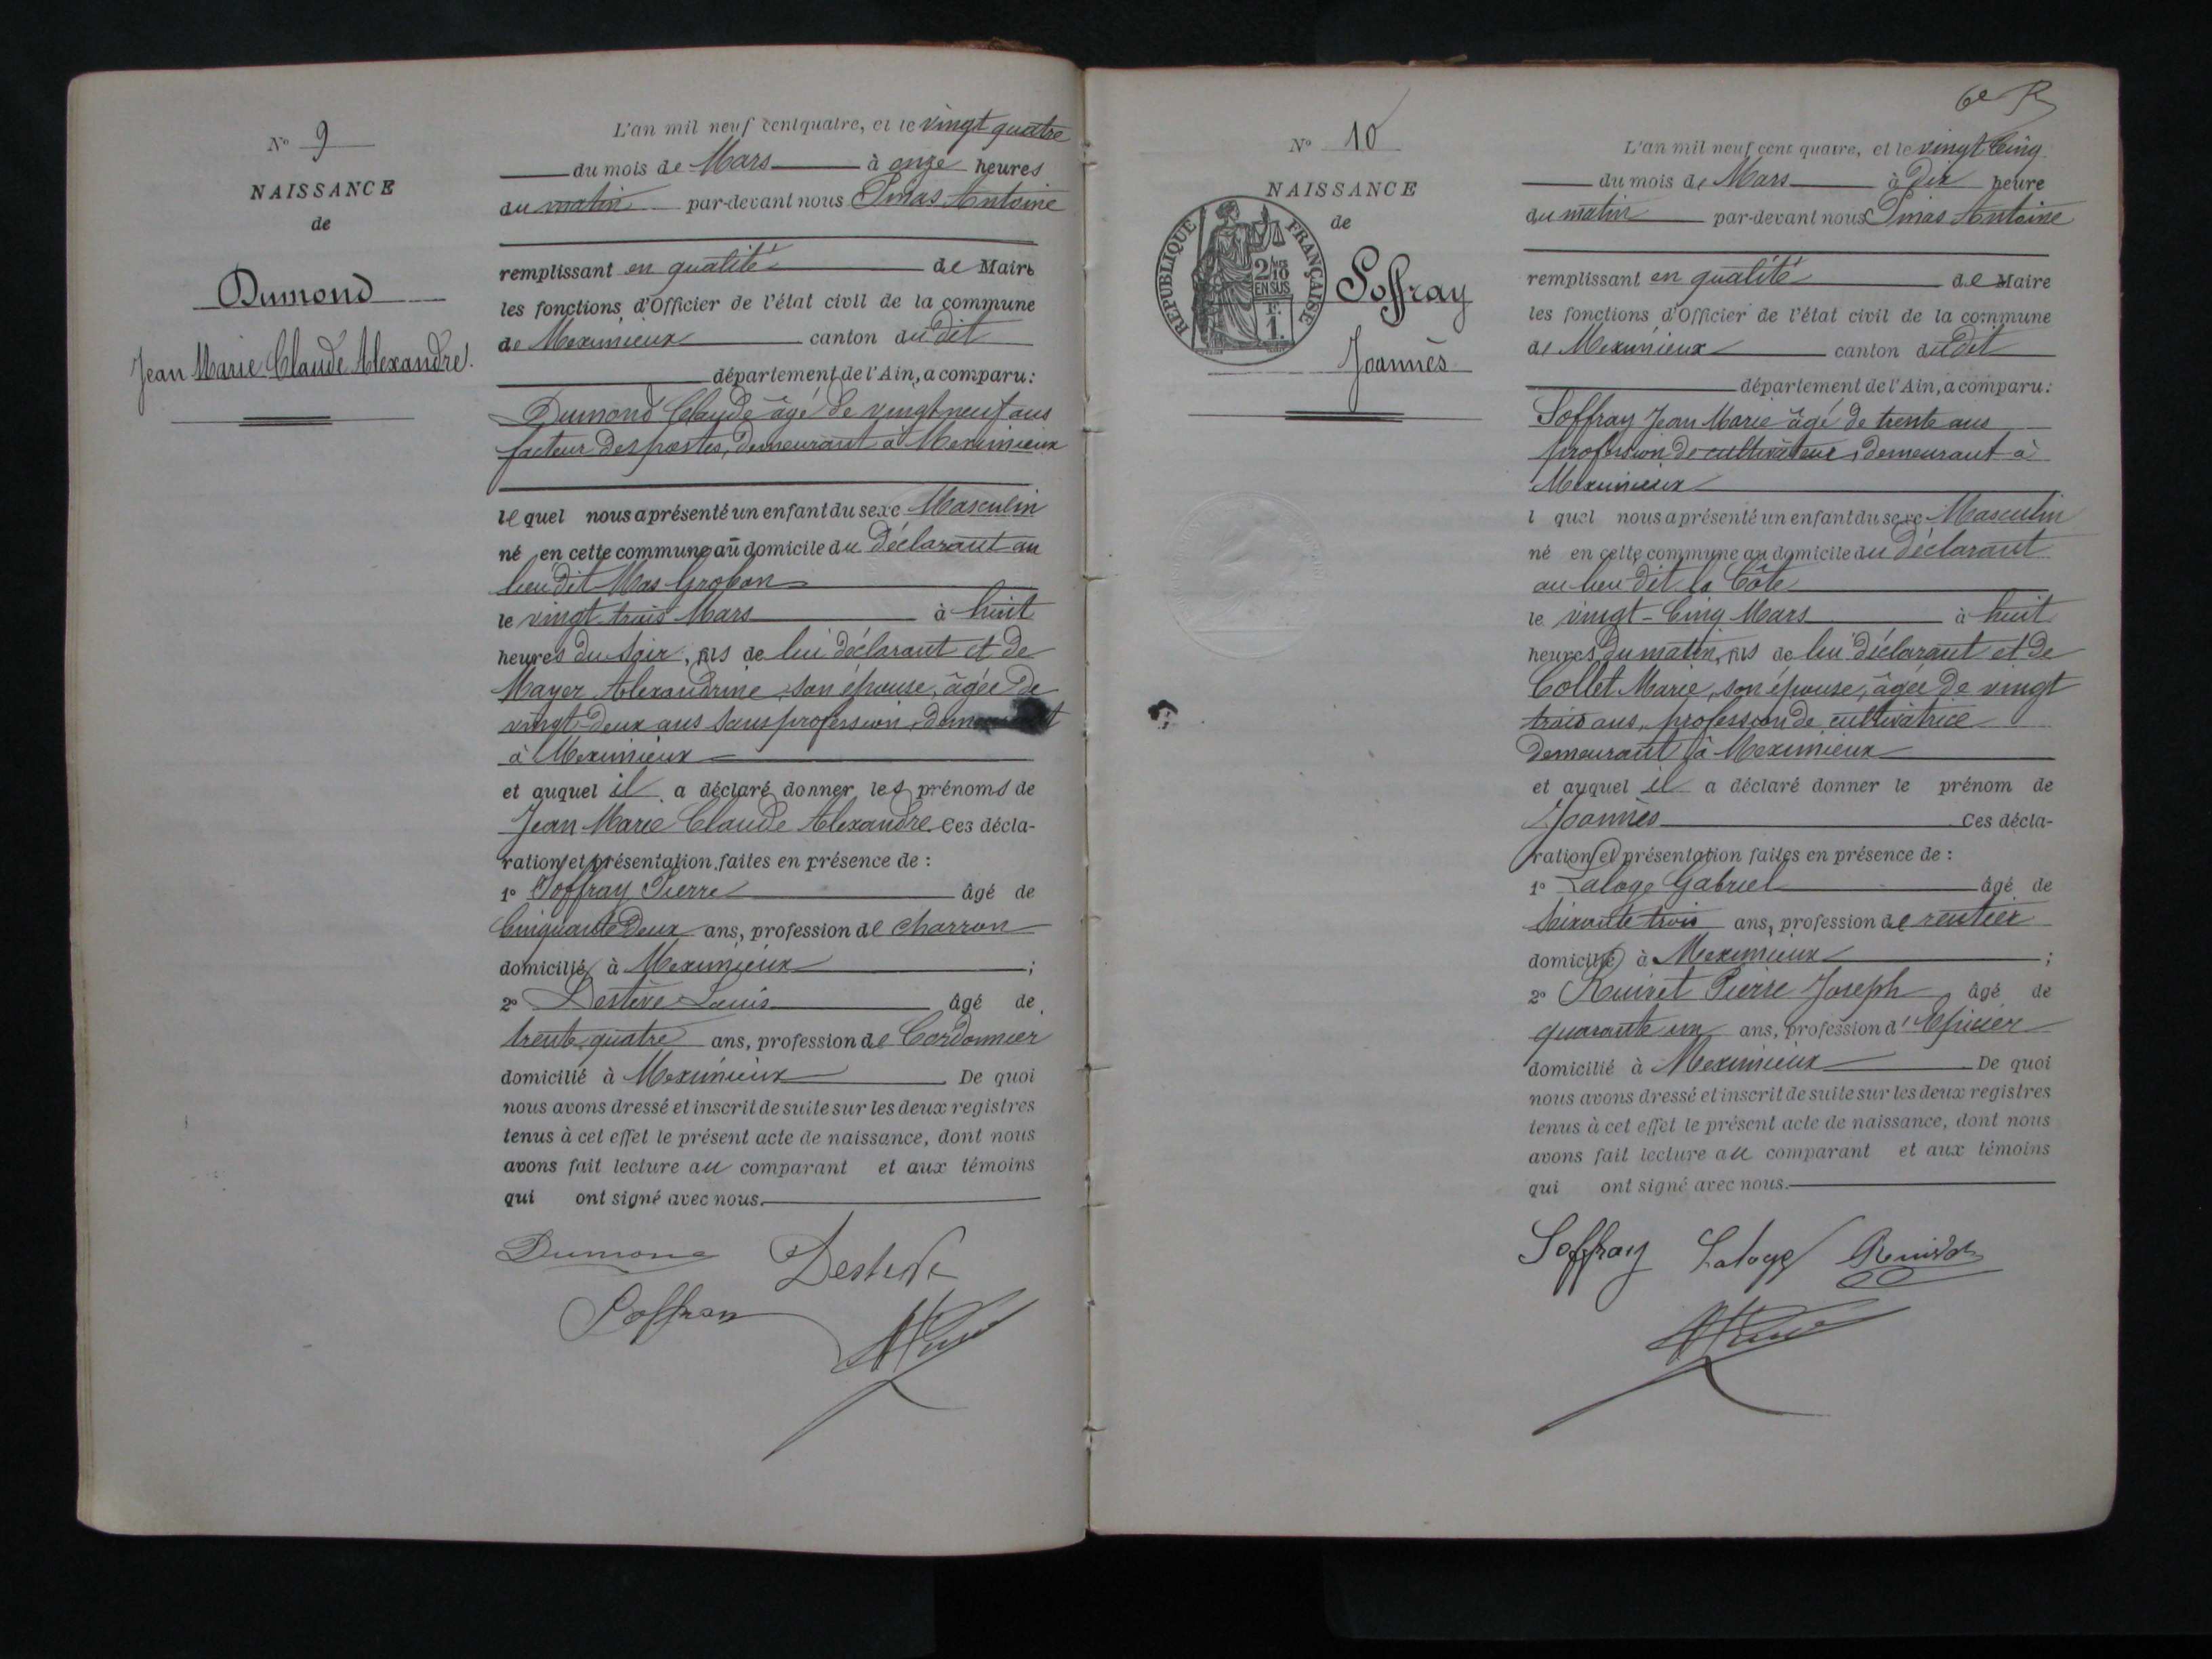 N° 9
NAISSANCE
de
Dumond
Jean Marie Claude Alexandre.
L'an mil neuf cent quatre, et le vingt quatre
du mois de Mars à onze heures
du matin par-devant nous Pinas Antoine
remplissant en qualité de Maire
les fonctions d'Officier de l'état civil de la commune
de Meximieux canton du dit
département de l'Ain, a comparu :
Dumond Claude âgé de vingt neuf ans
facteur des postes, demeurant à Meximieux
le quel nous a présenté un enfant du sexe Masculin
né en cette commune au domicile du déclarant au
lieu dit Mas Grobon
le vingt trois Mars à huit
heures du soir, fils de lui déclarant et de
Mayer Alexandrine, son épouse, âgée de
vingt-deux ans sans profession, demeurant
à Meximieux
et auquel il a déclaré donner les prénoms de
Jean Marie Claude Alexandre. Ces décla-
ration et présentation faites en présence de :
1° Soffray Pierre âgé de
Cinquante Deux ans, profession de charron
domicilié à Meximieux ;
2° Destève Louis âgé de
trente quatre ans, profession de Cordonnier
domicilié à Meximieux De quoi
nous avons dressé et inscrit de suite sur les deux registres
tenus à cet effet le présent acte de naissance, dont nous
avons fait lecture au comparant et aux témoins
qui ont signé avec nous.
Dumond Destève
Soffray
6e
N° 10
NAISSANCE
de
RÉPUBLIQUE FRANÇAISE
2/10
EN SUS
F.
1.
Soffray
Joannès
L'an mil neuf cent quatre, et le vingt Cinq
du mois de Mars à Dix heure
du matin par-devant nous Pinas Antoine
remplissant en qualité de Maire
les fonctions d'Officier de l'état civil de la commune
de Meximieux canton du dit
département de l'Ain, a comparu :
Soffray Jean Marie âgé de trente ans
profession de cultivateur, demeurant à
Meximieux
l quel nous a présenté un enfant du sexe Masculin
né en cette commune au domicile du déclarant
au lieu dit la Côte
le vingt-Cinq Mars à huit
heures du matin, fils de lui déclarant et de
Collet Marie, son épouse, âgée de vingt
trois ans, profession de cultivatrice
demeurant à Meximieux
et auquel il a déclaré donner le prénom de
Joannès Ces décla-
ration et présentation faites en présence de :
1° Laloge Gabriel âgé de
Soixante trois ans, profession de rentier
domicilié à Meximieux ;
2° Pierre Joseph âgé de
quarante un ans, profession d'Epicier
domicilié à Meximieux De quoi
nous avons dressé et inscrit de suite sur les deux registres
tenus à cet effet le présent acte de naissance, dont nous
avons fait lecture au comparant et aux témoins
qui ont signé avec nous.
Soffray Laloge